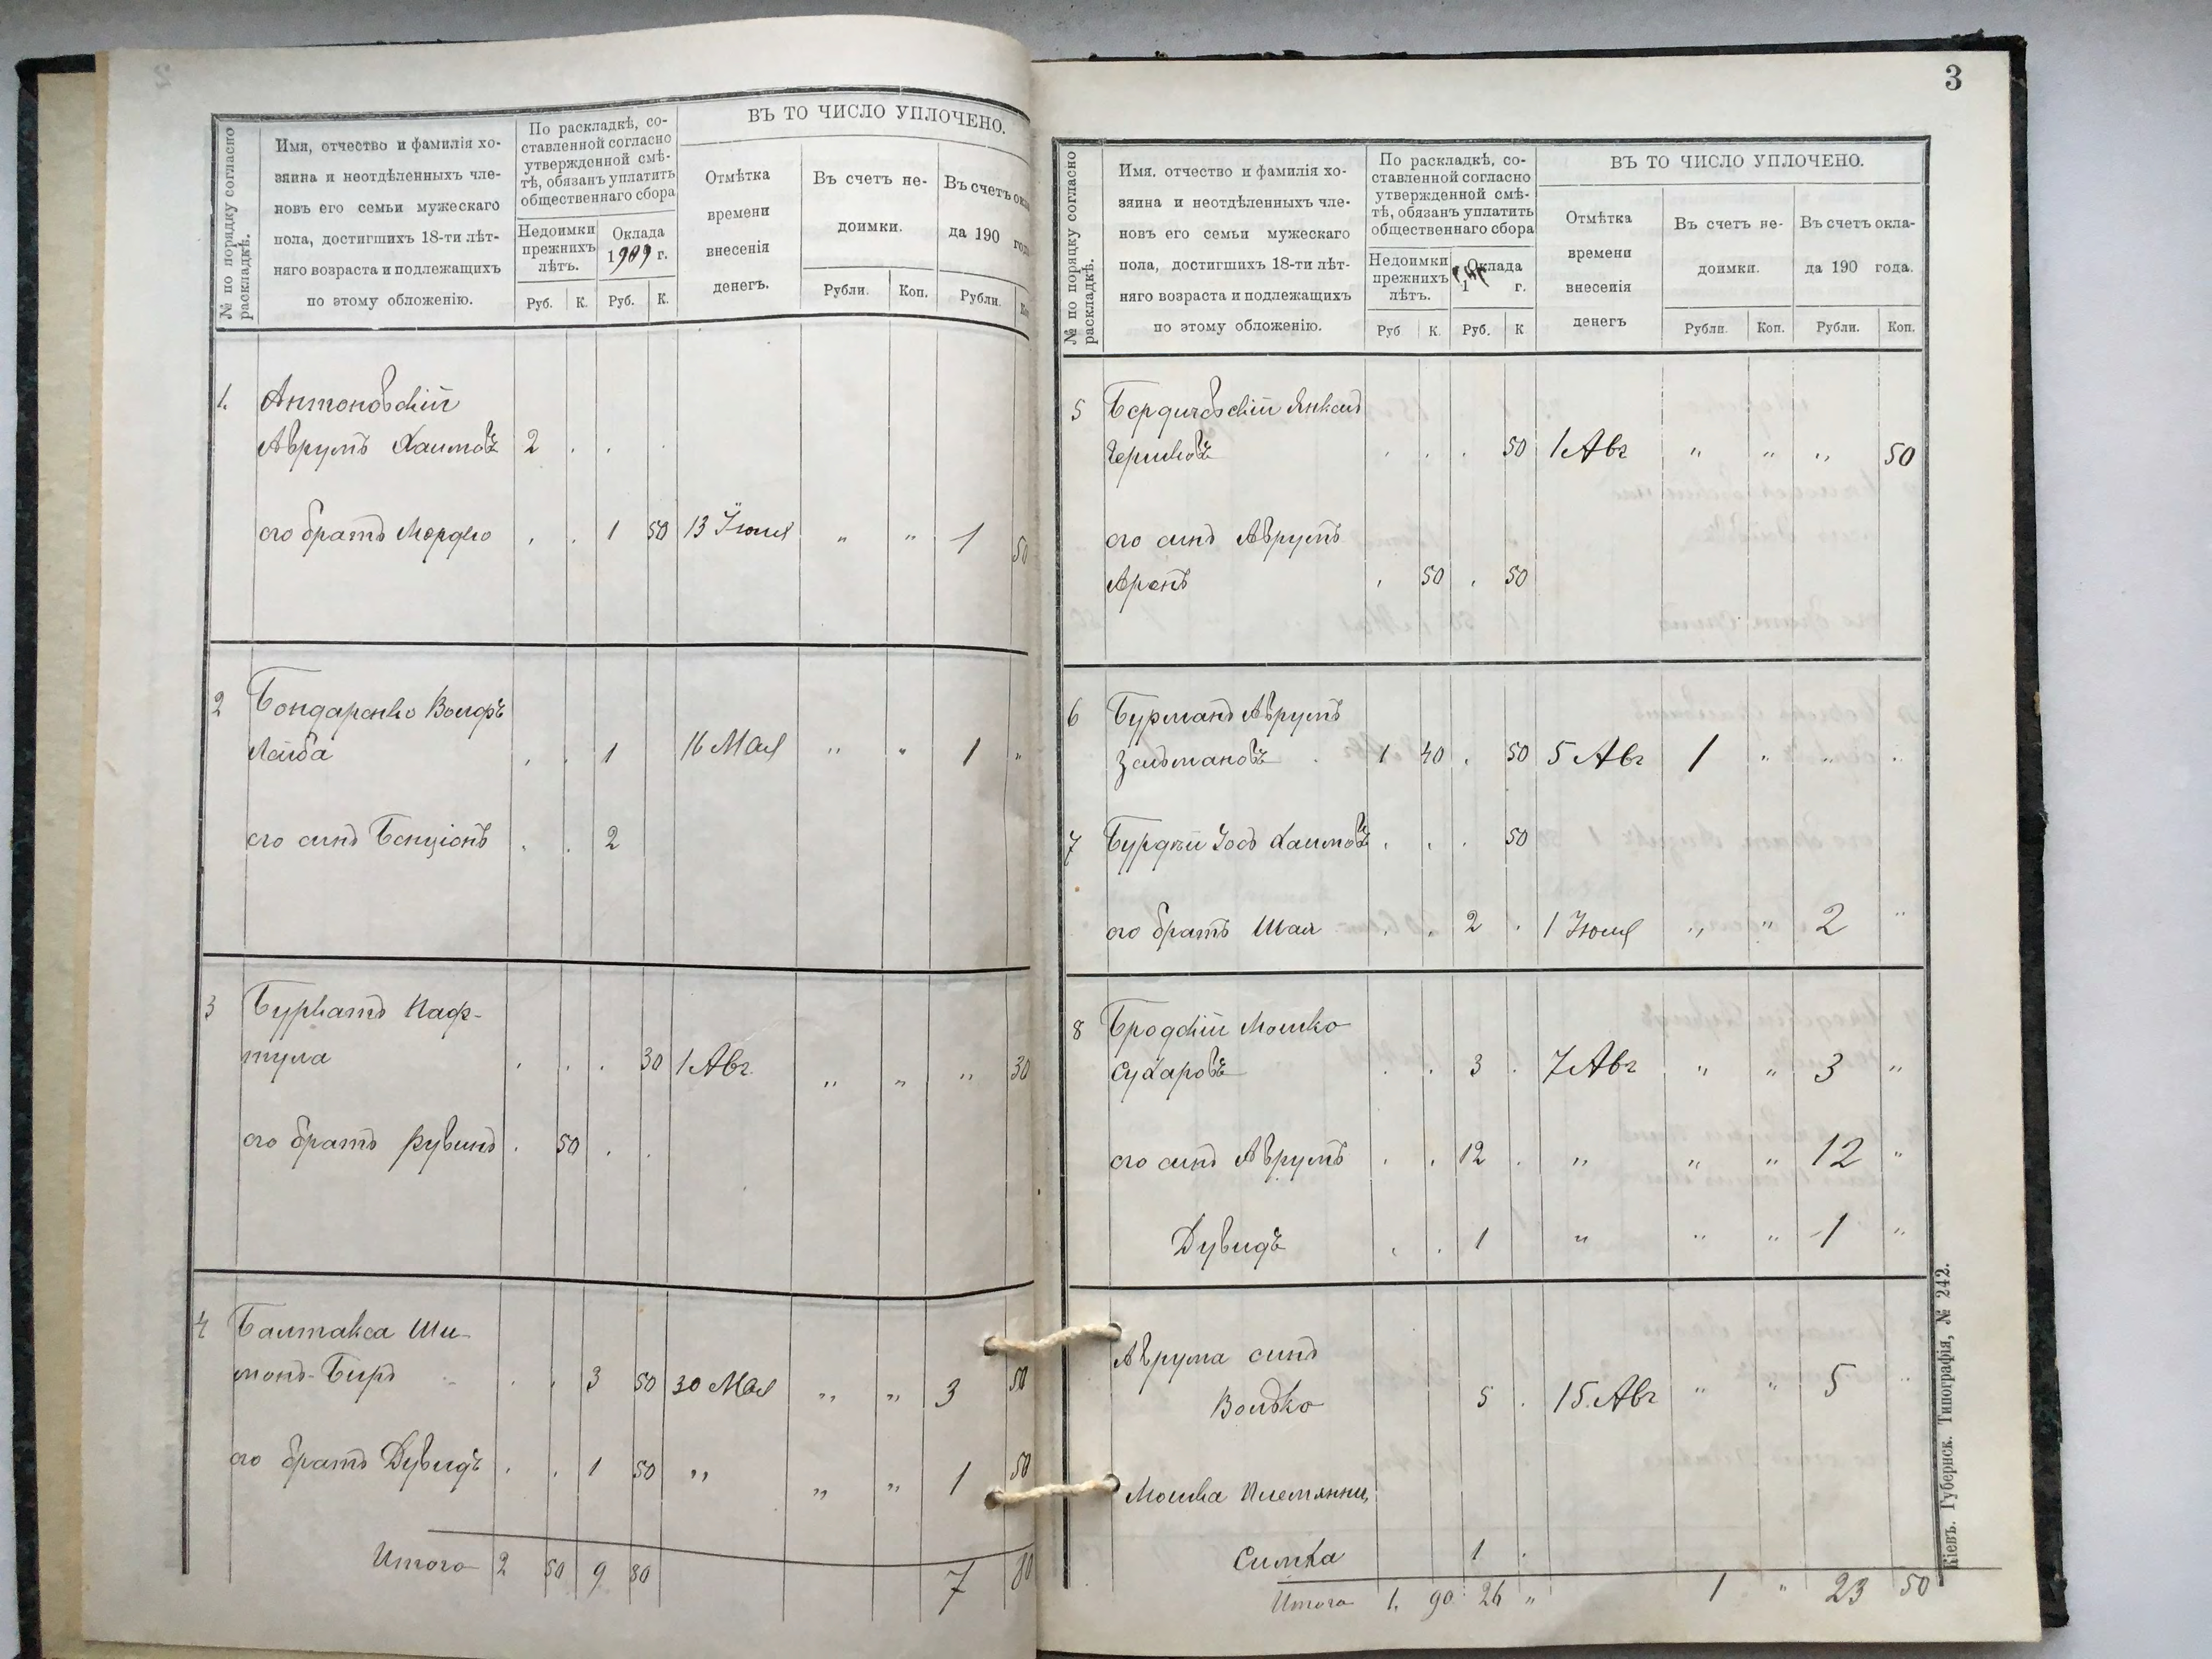 № по порядку согласно
раскладкѣ.
Имя, отчество и фамилія хо-
зяина и неотдѣленныхъ чле-
новъ его семьи мужескаго
пола, достигшихъ 18-ти лѣт-
няго возраста и подлежащихъ
по этому обложенію.
По раскладкѣ, со-
ставленной согласно
утвержденной смѣ-
тѣ, обязанъ уплатить
общественнаго сбора
Недоимки
прежнихъ
лѣтъ.
Оклада
1909 г.
Руб. К. Руб. К.
ВЪ ТО ЧИСЛО УПЛОЧЕНО.
Отмѣтка
времени
внесенія
денегъ.
Въ счетъ не-
доимки.
Рубли. Коп.
Въ счетъ окла
да 190 год
Рубли. Ко
1. Антоновскій
Аврумъ Хаимовъ 2 . .
его братъ Мордко . . 1 50 13 Іюня " " 1 50
2 Бондаренко Волфъ
Лейба . . 1 16 Мая " " 1 "
его сынъ Бенціонъ . . 2
3 Бурkатъ Наф-
тула . . . 30 1 Авг. " " " 30
его братъ Рувинъ . 50 . .
4 Балтакса Ши-
монъ-Беръ . . 3 50 30 Мая " " 3 50
его братъ Дувидъ . . 1 50 " " " 1 50
Итого 2 50 9 80 7 80
3
№ по порядку согласно
раскладкѣ.
Имя. отчество и фамилія хо-
зяина и неотдѣленныхъ чле-
новъ его семьи мужескаго
пола, достигшихъ 18-ти лѣт-
няго возраста и подлежащихъ
по этому обложенію.
По раскладкѣ, со-
ставленной согласно
утвержденной смѣ-
тѣ, обязанъ уплатить
общественнаго сбора
Недоимки
прежнихъ
лѣтъ.
Оклада
1 г.
Руб К. Руб. К
ВЪ ТО ЧИСЛО УПЛОЧЕНО.
Отмѣтка
времени
внесенія
денегъ
Въ счетъ не-
доимки.
Рубли. Коп.
Въ счетъ окла-
да 190 года.
Рубли. Коп.
5 Бердичевскій Янкель
Гершковъ . . . 50 1 Авг " " " 50
его сынъ Аврумъ
Аронъ . 50 . 50
6 Бурманъ Аврумъ
Зельмановъ 1 40 . 50 5 Авг 1 " " "
7 Бурдей Іосъ Хаимовъ . . . 50
его братъ Шая . . 2 . 1 Іюня " " 2 "
8 Бродскій Мошко
Сухаровъ . . 3 . 7 Авг " " 3 "
его сынъ Аврумъ . . 12 . " " " 12 "
Дувидъ . . 1 " " " 1 "
Аврума сынъ
Волько 5 . 15 Авг " " 5 "
Мошка племянни,
Симха 1 .
Итого 1. 90 26 " 1 " 23 50
Кіевъ. Губернск. Типографія, № 242.